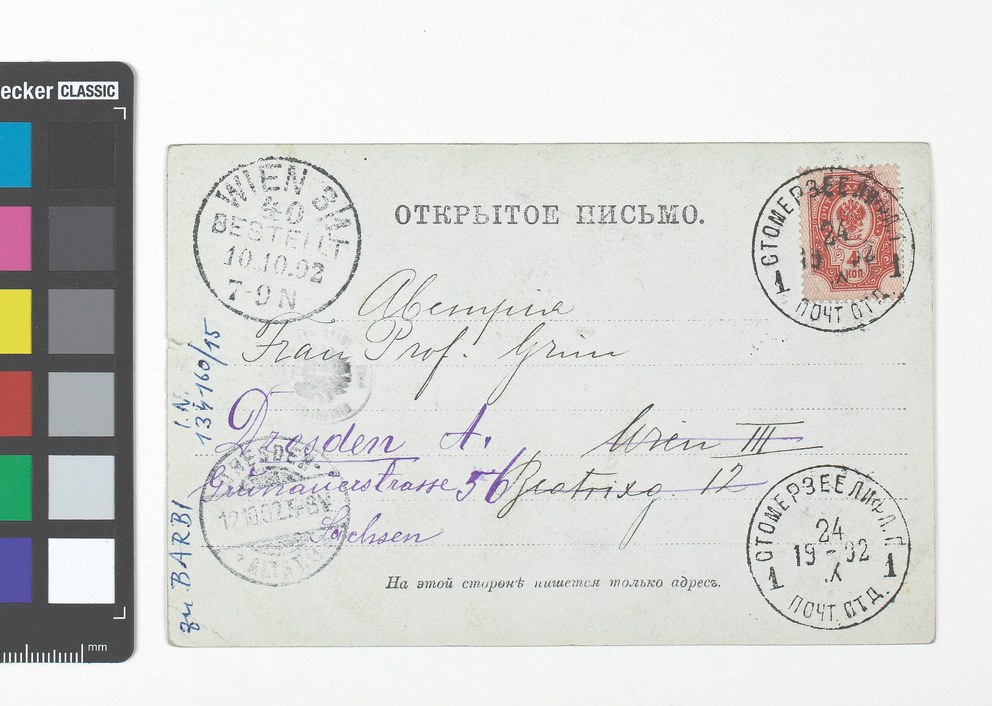 ecker CLASSIC
WIEN 3/1
40
BESTELLT
10.10.02
7-9 N
ОТКРЫТОЕ ПИСЬМО.
СТОМЕРЗЕЕ ЛИФЛ. Г.
24
19 02
X
1 1
ПОЧТ. ОТД.
4
КОП
Австрія
Frau Prof. Grün
Dresden A. Wien III
56 Beatrixg. 12
Sachsen
DRESDEN
12.10.02. 5-6 V
ALTST.
I.N.
134160/15
zu BARBI
СТОМЕРЗЕЕ ЛИФЛ. Г.
24
19-02
X
1 1
ПОЧТ. ОТД.
На этой сторонѣ пишется только адресъ.
mm